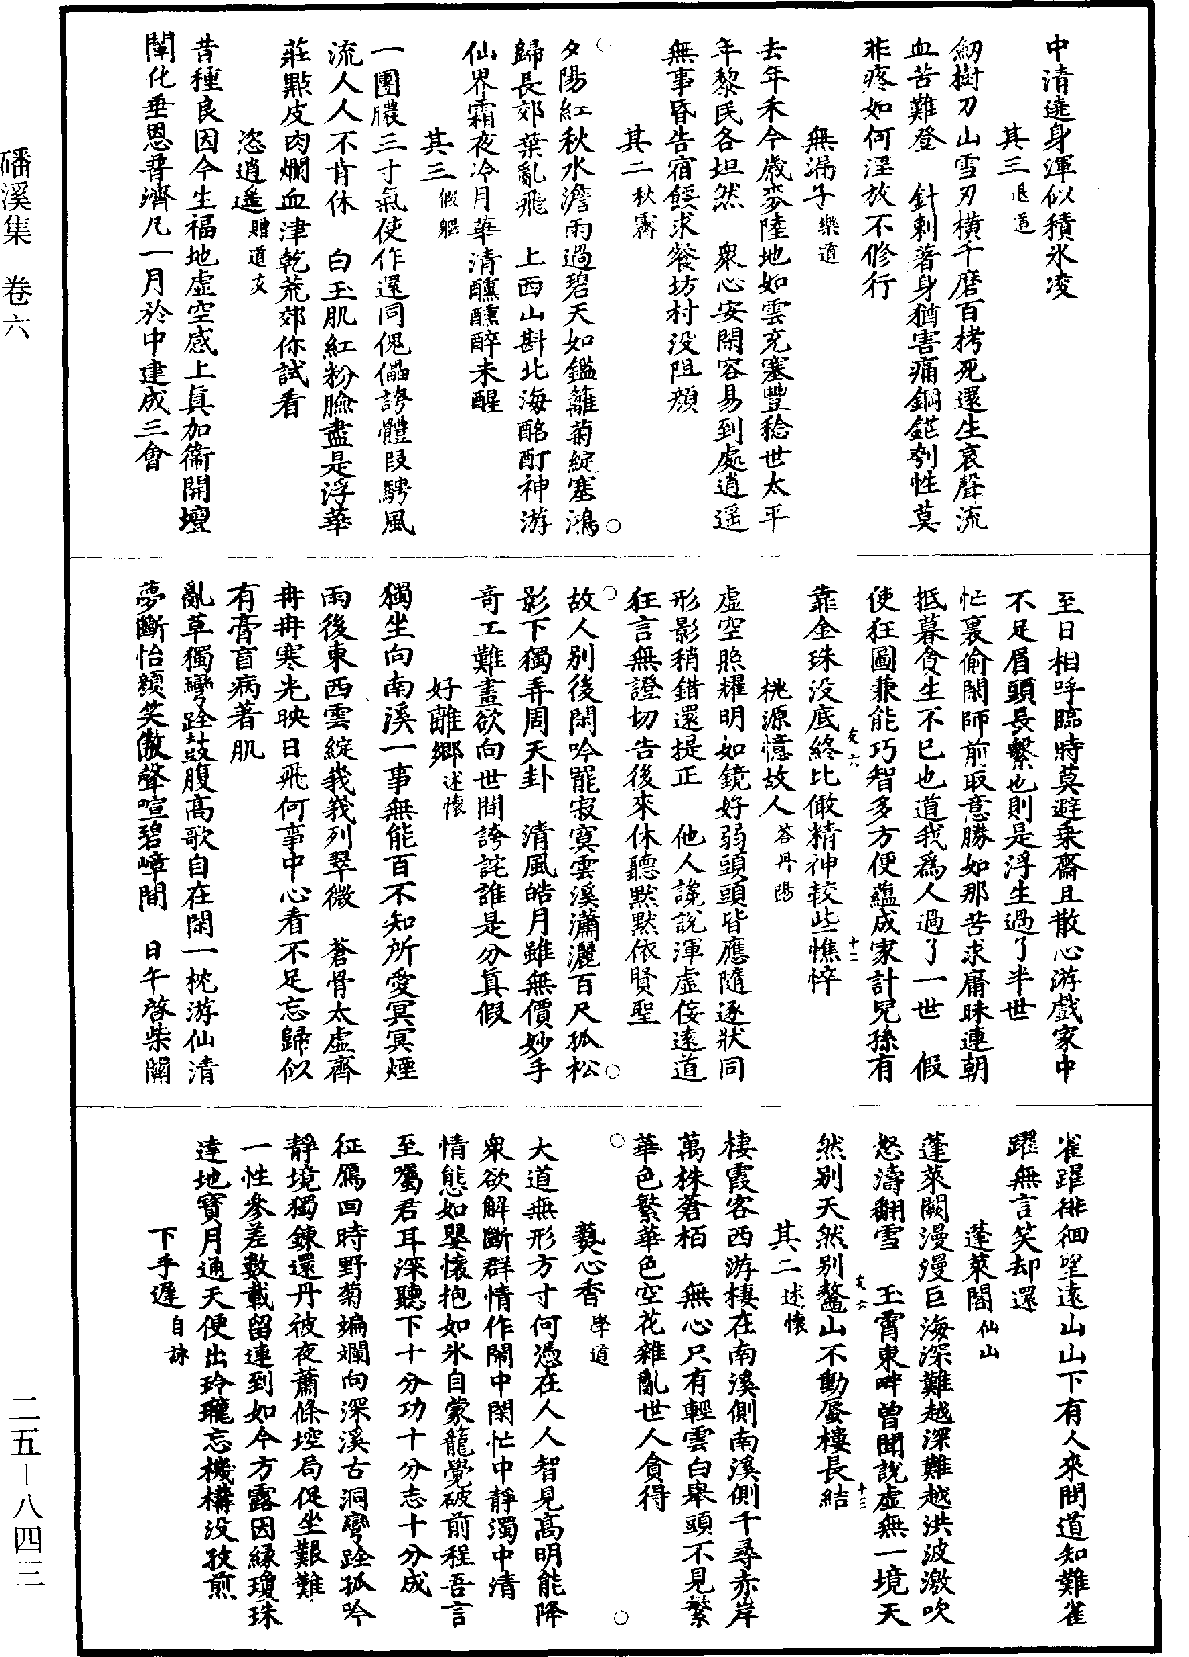 中清遶身渾似積氷凌
其三 退道
劒樹刀山雪刃橫千磨百栲死還生哀聲流
血苦難登　針刺著身猶害痛鋼鎚刳性莫
非疼如何淫放不修行
無漏子 樂道
去年禾今歲麥陸地如雲充塞豐稔世太平
年黎民各坦然　衆心安閑容易到處逍遥
無事昏告宿餒求飡坊村没阻頦
其二 秋霽
夕陽紅秋水澹雨過碧天如鑑離菊綻塞鴻
歸長郊葉亂飛　上西山斟北海酩酊神游
仙界霜夜冷月華清醺醺醉未醒
其三 假軀
一團膿三寸氣使作還同傀儡誇體段騁風
流人人不肯休　白玉肌紅粉臉盡是浮華
莊點皮肉爛血津乾荒郊你試看
恣逍遥 贈道友
昔種良因今生福地虛空感上真加衞開壇
闡化垂恩普濟凡一月於中建成三會
至日相呼臨時莫避乗齋且散心游戲家中
不足眉頭長繫也則是浮生過了半世
忙裏偷閑師前取意勝如那苦求庸昧連朝
抵暮貪生不已也道我爲人過了一世　假
使狂圖兼能巧智多方便蘊成家計兒孫有
靠金珠没底終比儌精神較些憔悴
友六　十二
桃源憶故人 荅丹陽
虛空照耀明如鏡好弱頭頭皆應隨逐狀同
形影稍錯還提正　他人謾説渾虛佞遠道
狂言無證切告後來休聽黙黙依賢聖
故人別後閑吟罷寂寞雲溪瀟灑百尺孤松
影下獨弄周天卦　清風皓月雖無價妙手
竒工難畫欲向世間誇詫誰是分真假
好離鄉 述懷
獨坐向南溪一事無能百不知所愛冥冥煙
雨後東西雲綻峩峩列翠微　蒼骨太虛齊
冉冉寒光映日飛何事中心看不足忘歸似
有膏盲病著肌
亂草獨彎跧鼓腹高歌自在閑一枕游仙清
夢斷怡顔笑傲聲喧碧嶂間　日午啓柴關
雀躍徘徊望遠山山下有人來問道知難雀
躍無言笑却還
蓬萊閣 仙山
蓬萊闕漫漫巨海深難越深難越洪波激吹
怒濤翻雪　玉霄東畔曽聞説虛無一境天
然別天然別鼇山不動蜃樓長結
友六　十三
其二 述懷
棲霞客西游棲在南溪側南溪側千尋赤岸
萬株蒼栢　無心只有輕雲白舉頭不見繁
華色繁華色空花雜亂世人貪得
爇心香 學道
大道無形方寸何憑在人人智見高明能降
衆欲解斷群情作鬧中閑忙中靜濁中清
情態如嬰懷抱如氷自蒙籠覺破前程吾言
至屬君耳深聽下十分功十分志十分成
征鴈回時野菊斒斕向深溪古洞彎跧孤吟
靜境獨鍊還丹彼夜蕭條垤局促坐艱難
一性參差數載留連到如今方露因緣瓊珠
達地寶月通天便出玲瓏忘機構没孜煎
下手遲 自詠
磻溪集　卷六
二五－八四三